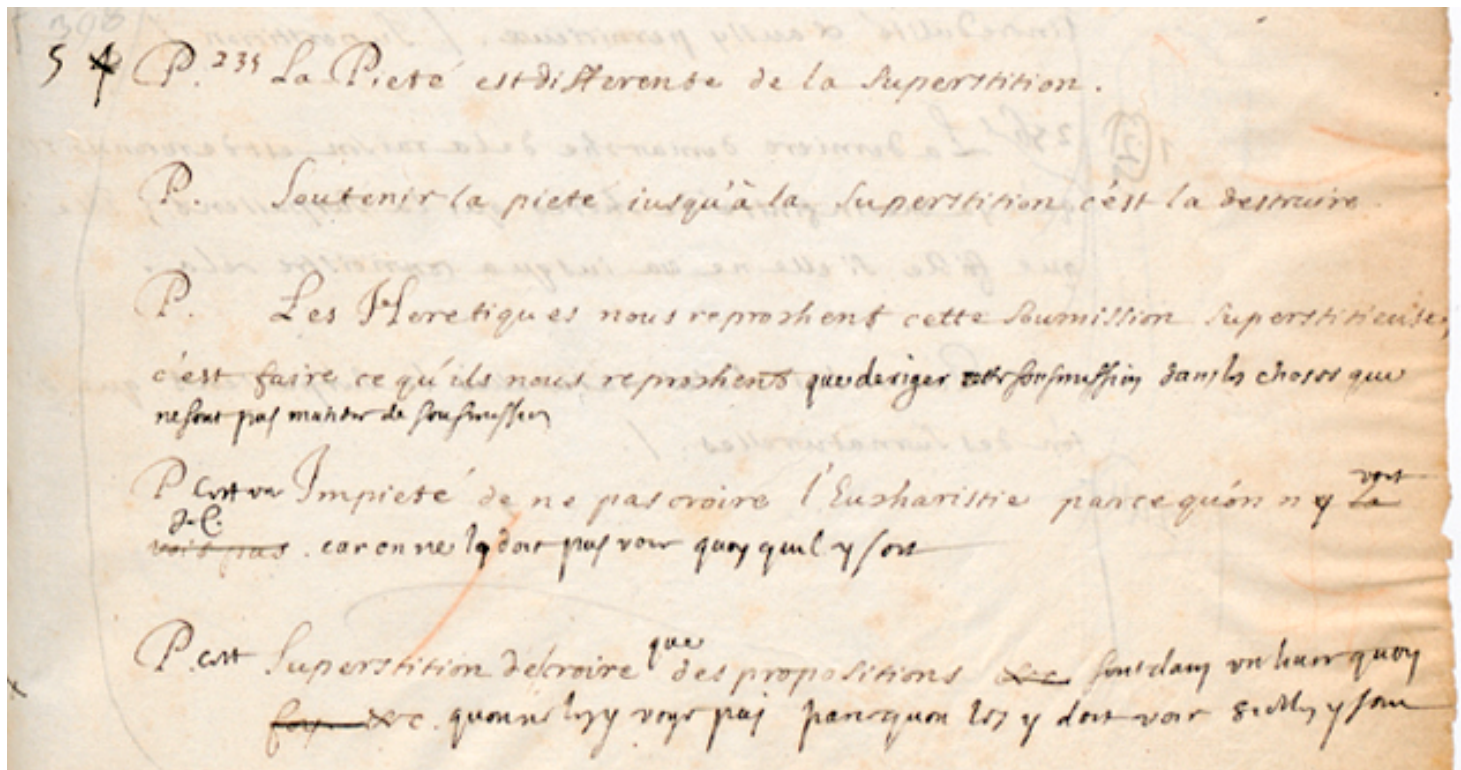 5 P. 235 La Pieté est differente de la Superstition.
P. Soutenir la pieté iusqu'à la Superstition c'est la destruire.
P. Les Heretiques nous reprochent cette Soumission Superstitieuse,
c'est faire ce qu'ils nous reprochent que dexiger cette sousmission dans les choses que
ne sont pas matiere de sousmission
P. Cest une Impieté de ne pas croire l'Eucharistie parcequ'on n y voit la
voit pas. car on ne ly doit pas voir quoy quil y soit
P. cest Superstition de croire que des propositions &c. sont dans un livre quoy
foy &c. quon ne les y voye pas parcequon les y doit voir si elles y sont